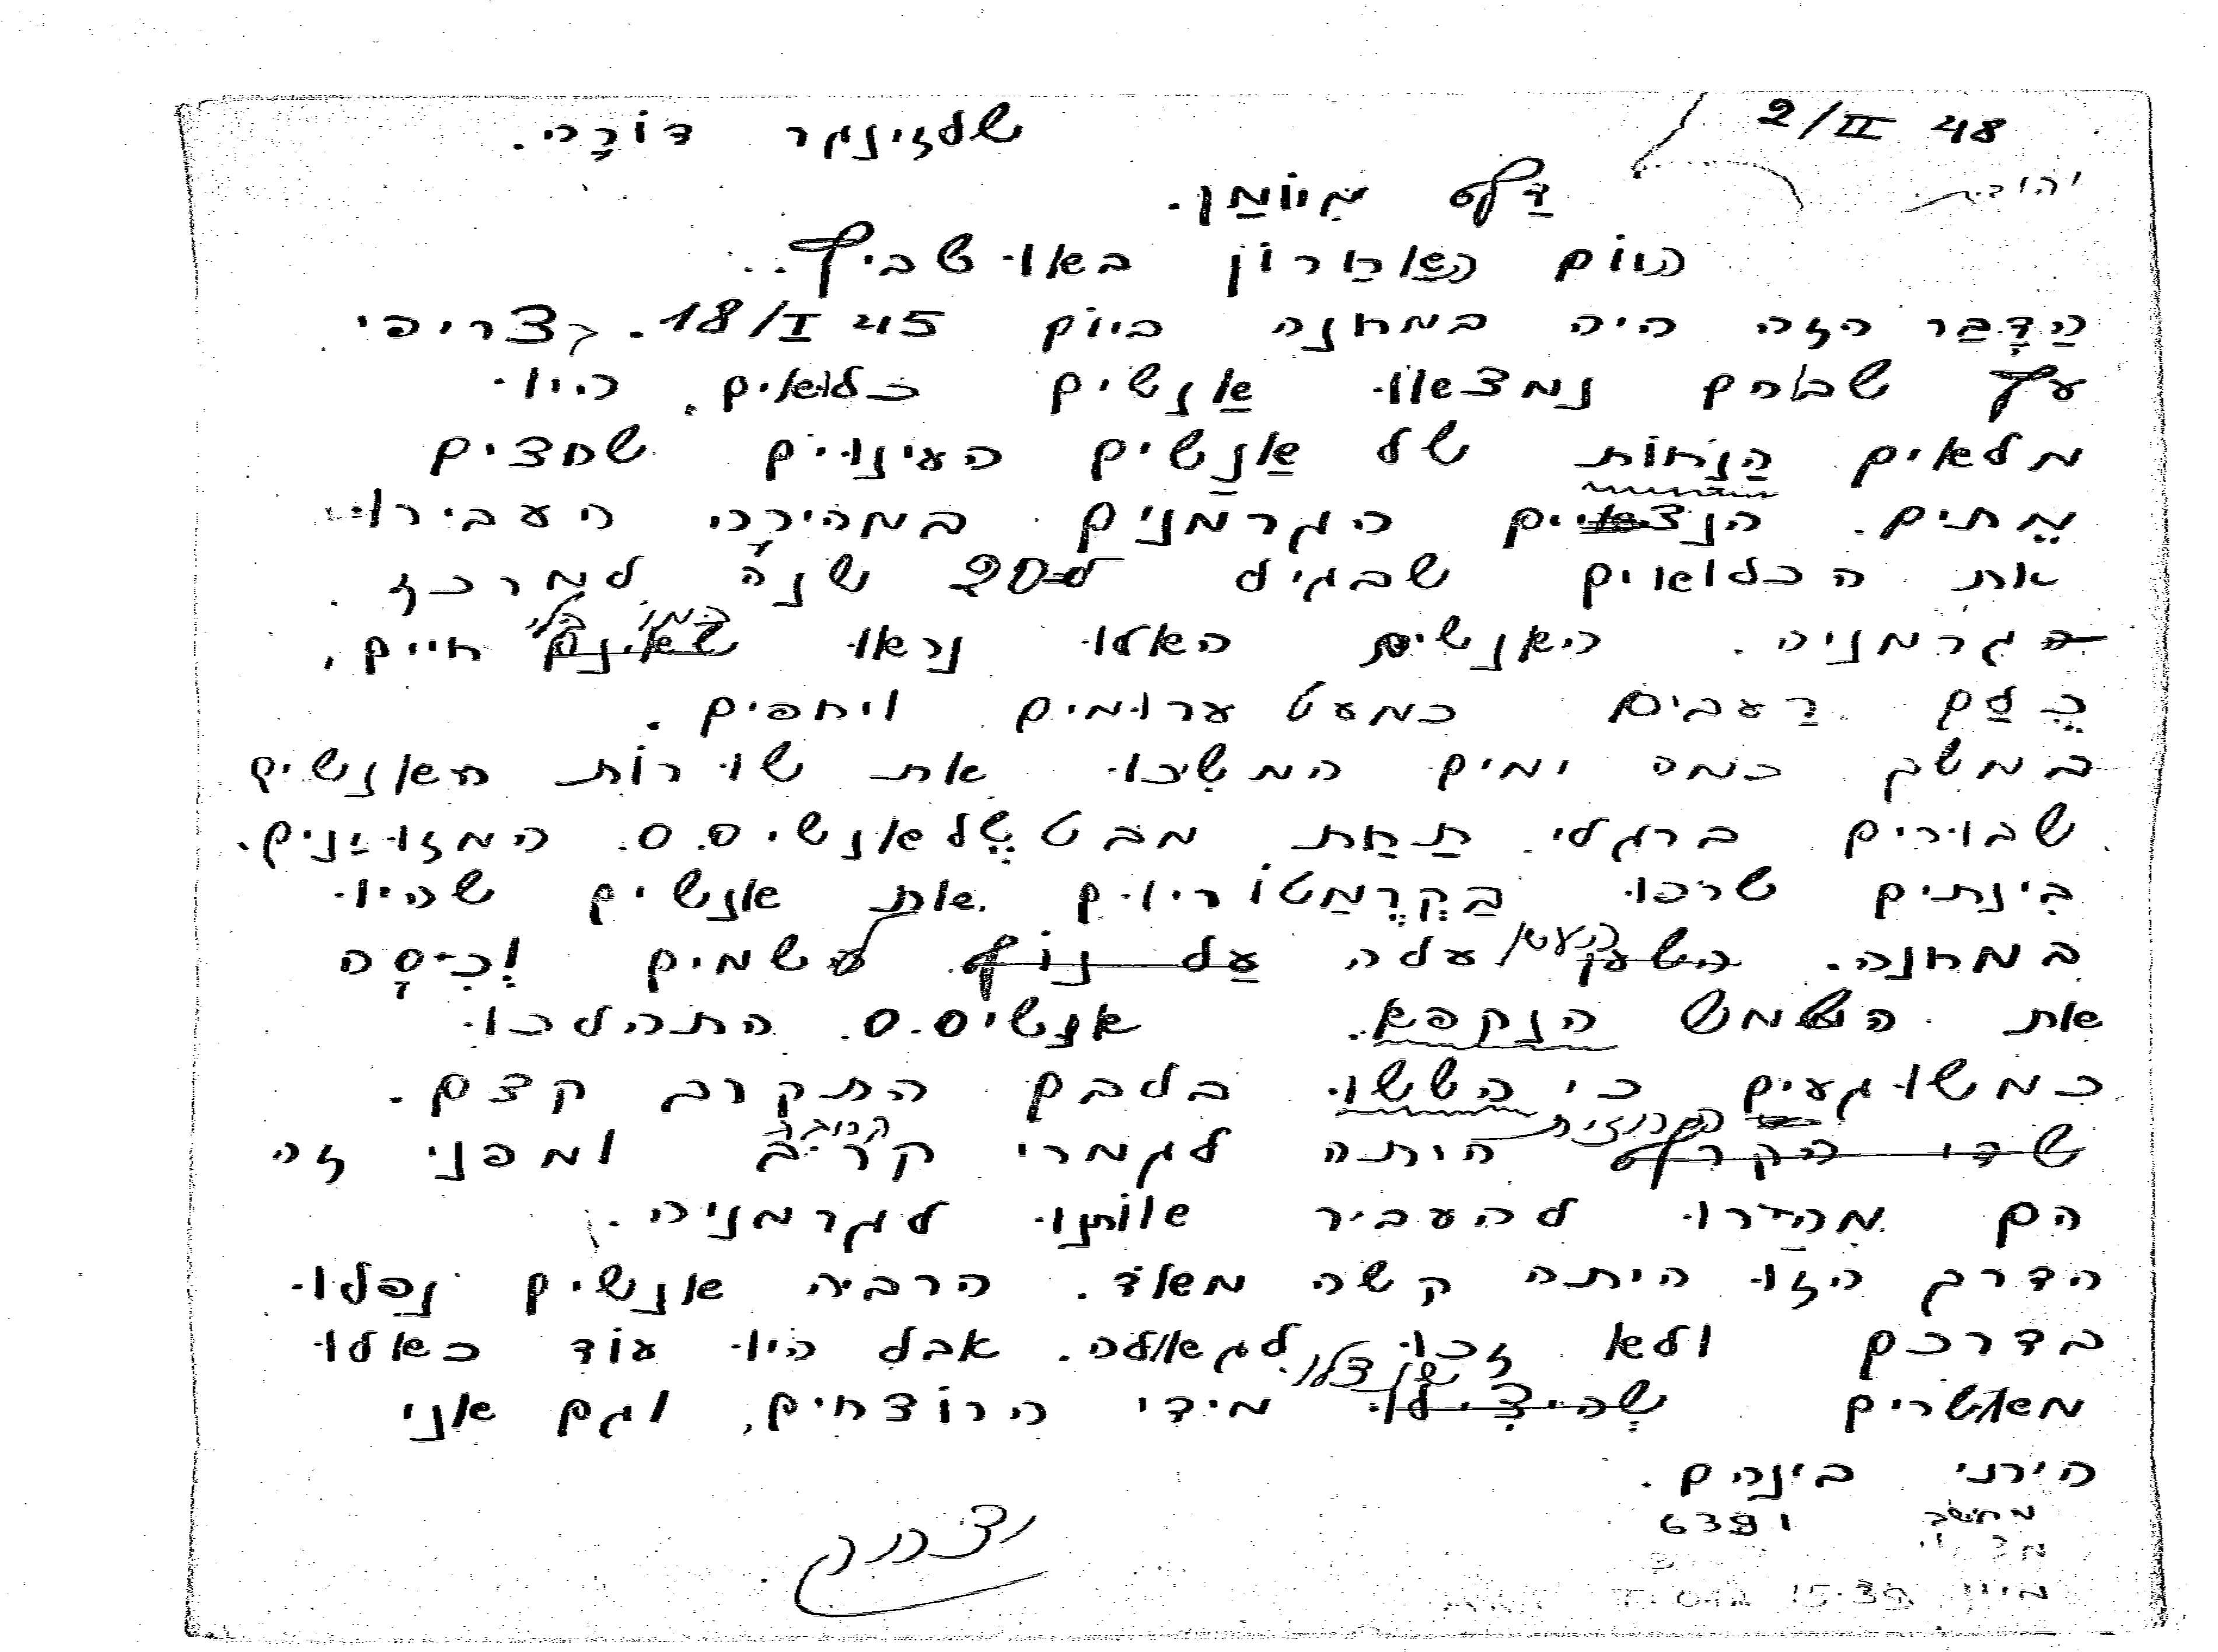 2/II 48 שלזינגר דּוֹרָה.
יהודית
דַף מִיוֹמַן.
היוֹם הַאַחַרוֹן באוּשביץ..
הַדָבַר הזה היה במחנה ביוֹם 18/I 45. צריפי
עץ שבהם נמצאוּ אַנשים כלוּאים, היוּ
מלאים הַנַחוֹת של אַנַשים העינוּיים שחצים
מֱתים. הנצים הגרמַנים במהירָה העבירוּ
את הכלואים שבגיל ל-20 שנה למרכז
גרמניה. האנשים האלוּ נראוּ שאינם כמו בלי חיים,
כֱלַם רַעבים כמעט ערוּמים ויחפים.
במשך כמה ימים המשיכוּ את שוּרוֹת האנשים
שבוּרים ברגלי תַחַת מבט שֱל אנשי ס.ס. המזוּינים.
בינתים שרפוּ בַקְרֱמַטוֹריוּים את אנשים שהיוּ
במחנה. השעק העשן עלה עַל נוֹף השמים וְכִיסָה
את השמש הנקפא. אנשי ס.ס. התהלכוּ
כמשוּגעים כי הששוּ בלבם התקרב קצם.
שדי הקרף החזית היתה לגמרי קריב קרובה ומפני זה
הם מִהַירוּ להעביר אוֹתנוּ לגרמניה.
הדרך הזוּ היתה קשה מאד. הרביה אנשים נפלוּ
בדרכם ולא זכוּ לגאולה. אבל היוּ עוֹד כאלוּ
מאוּשרים שְהיצִילוּ שנצלו מידי הרוֹצחים, וגם אני
היתי בינהם.
מחשב 6391
מיין 15.38